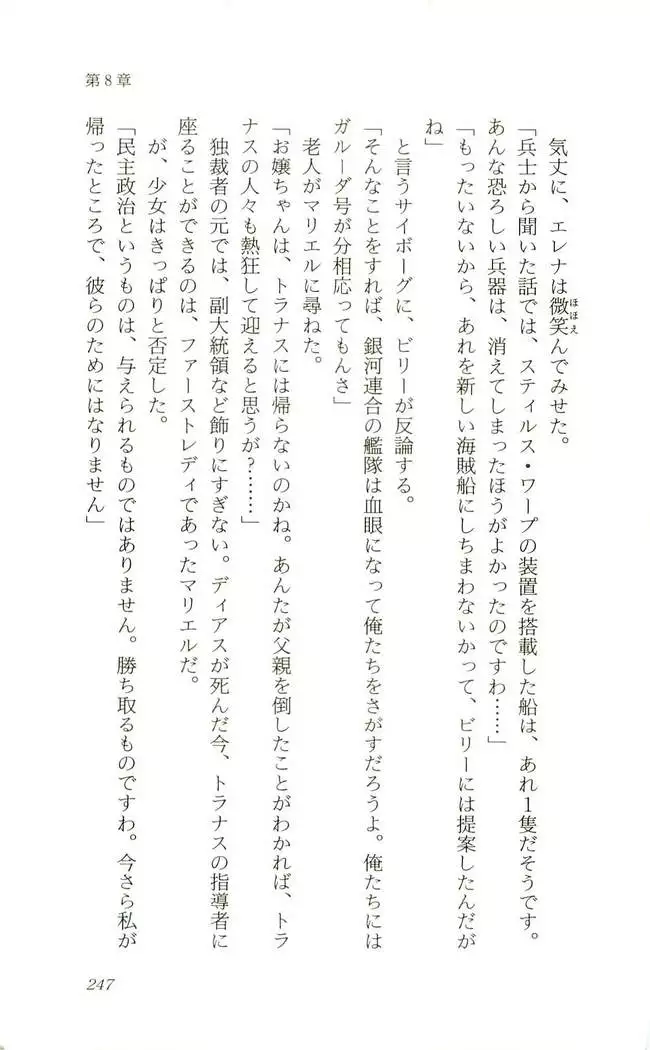 第８章
気丈に、エレナは微笑んでみせた。
ほほえ
「兵士から聞いた話では、スティルス・ワープの装置を搭載した船は、あれ１隻だそうです。
あんな恐ろしい兵器は、消えてしまったほうがよかったのですわ……」
「もったいないから、あれを新しい海賊船にしちまわないかって、ビリーには提案したんだが
ね」
と言うサイボーグに、ビリーが反論する。
「そんなことをすれば、銀河連合の艦隊は血眼になって俺たちをさがすだろうよ。俺たちには
ガルーダ号が分相応ってもんさ」
老人がマリエルに尋ねた。
「お嬢ちゃんは、トラナスには帰らないのかね。あんたが父親を倒したことがわかれば、トラ
ナスの人々も熱狂して迎えると思うが？……」
独裁者の元では、副大統領など飾りにすぎない。ディアスが死んだ今、トラナスの指導者に
座ることができるのは、ファーストレディであったマリエルだ。
が、少女はきっぱりと否定した。
「民主政治というものは、与えられるものではありません。勝ち取るものですわ。今さら私が
帰ったところで、彼らのためにはなりません」
247